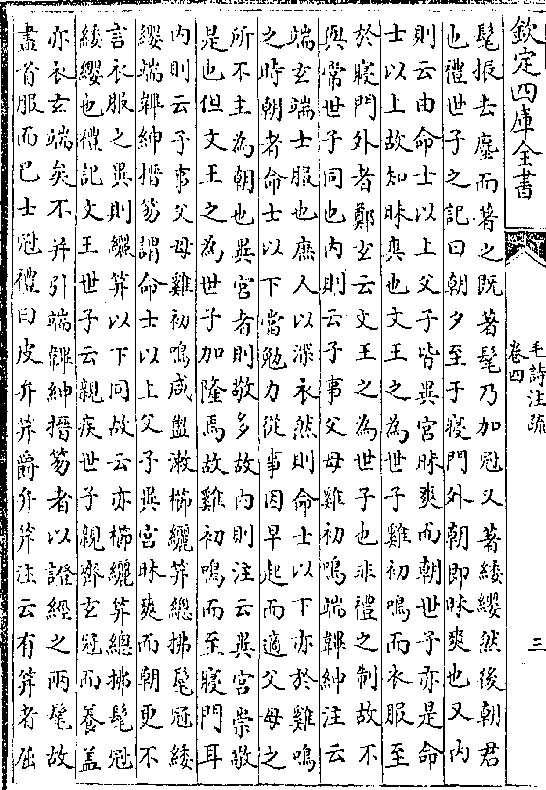 欽定四庫全書
毛詩注疏
卷四
三
髦振去塵而著之既著髦乃加冠又著緌纓然後朝君
也禮世子之記曰朝夕至于寢門外朝即昧爽也又内
則云由命士以上父子皆異宮昧爽而朝世子亦是命
士以上故知昧爽也文王之為世子雞初鳴而衣服至
於寢門外者鄭玄云文王之為世子也非禮之制故不
與常世子同也内則云子事父母雞初鳴端韠紳注云
端玄端士服也庶人以深衣然則命士以下亦於雞鳴
之時朝者命士以下當勉力從事因早起而適父母之
所不主為朝也異宮者則敬多故内則注云異宮崇敬
是也但文王之為世子加隆焉故雞初鳴而至寢門耳
内則云子事父母雞初鳴咸盥漱櫛纚笄總拂髦冠緌
纓端韠紳搢笏謂命士以上父子異宮昧爽而朝更不
言衣服之異則纚笄以下同故云亦櫛纚笄總拂髦冠
緌纓也禮記文王世子云親疾世子親齊玄冠而養蓋
亦衣玄端矣不并引端韠紳搢笏者以證經之兩髦故
盡首服而已士冠禮曰皮弁笄爵弁笄注云有笄者屈